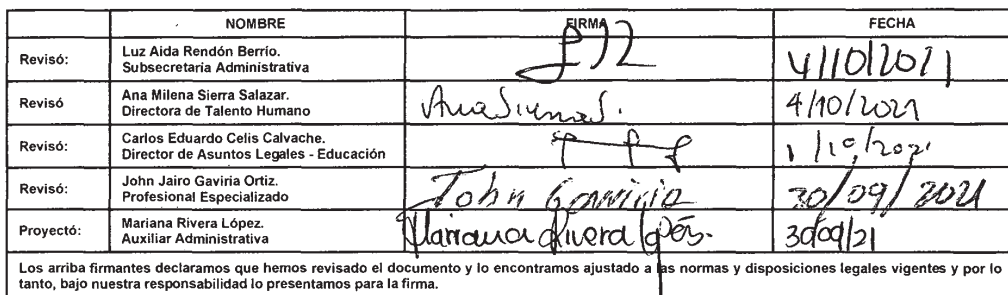 NOMBRE FIRMA FECHA
Revisó: Luz Aida Rendón Berrío.
Subsecretaria Administrativa
4/10/2021
Revisó Ana Milena Sierra Salazar.
Directora de Talento Humano
AnaSierraS. 4/10/2021
Revisó: Carlos Eduardo Celis Calvache.
Director de Asuntos Legales - Educación
1/10/2021
Revisó: John Jairo Gaviria Ortiz.
Profesional Especializado
John Gaviria 30/09/2021
Proyectó: Mariana Rivera López.
Auxiliar Administrativa
Mariana Rivera López. 30/09/21
Los arriba firmantes declaramos que hemos revisado el documento y lo encontramos ajustado a las normas y disposiciones legales vigentes y por lo
tanto, bajo nuestra responsabilidad lo presentamos para la firma.